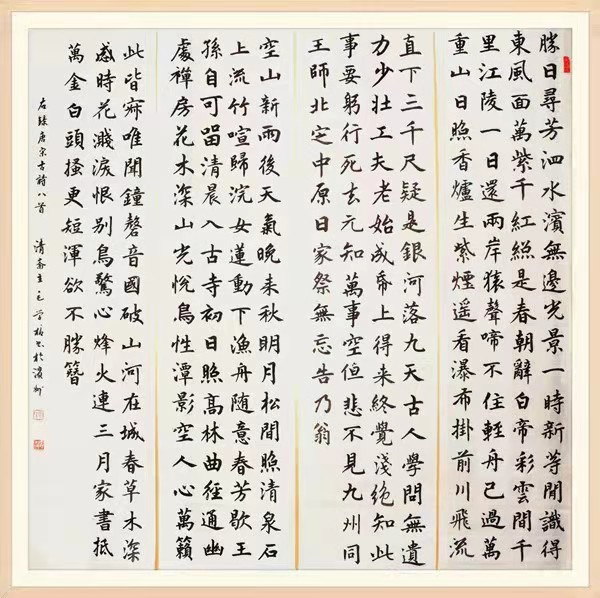 勝日尋芳泗水濱無邊光景一時新等閒識得
東風面萬紫千紅緫是春朝辭白帝彩雲間千
里江陵一日還兩岸猿聲啼不住輕舟已過萬
重山日照香爐生紫煙遥看瀑布掛前川飛流
直下三千尺疑是銀河落九天古人學問無遺
力少壮工夫老始成帋上得来終覺淺絶知此
事要躬行死去元知萬事空但悲不見九州同
王師北定中原日家祭無忘告乃翁
空山新雨後天氣晚来秋明月松間照清泉石
上流竹喧歸浣女蓮動下漁舟随意春芳歇王
孫自可留清晨入古寺初日照高林曲徑通幽
處禪房花木深山光悦鳥性潭影空人心萬籟
此皆寂唯聞鐘磬音國破山河在城春草木深
感時花濺淚恨别鳥驚心烽火連三月家書抵
萬金白頭搔更短渾欲不勝簪
右錄唐宋古詩八首